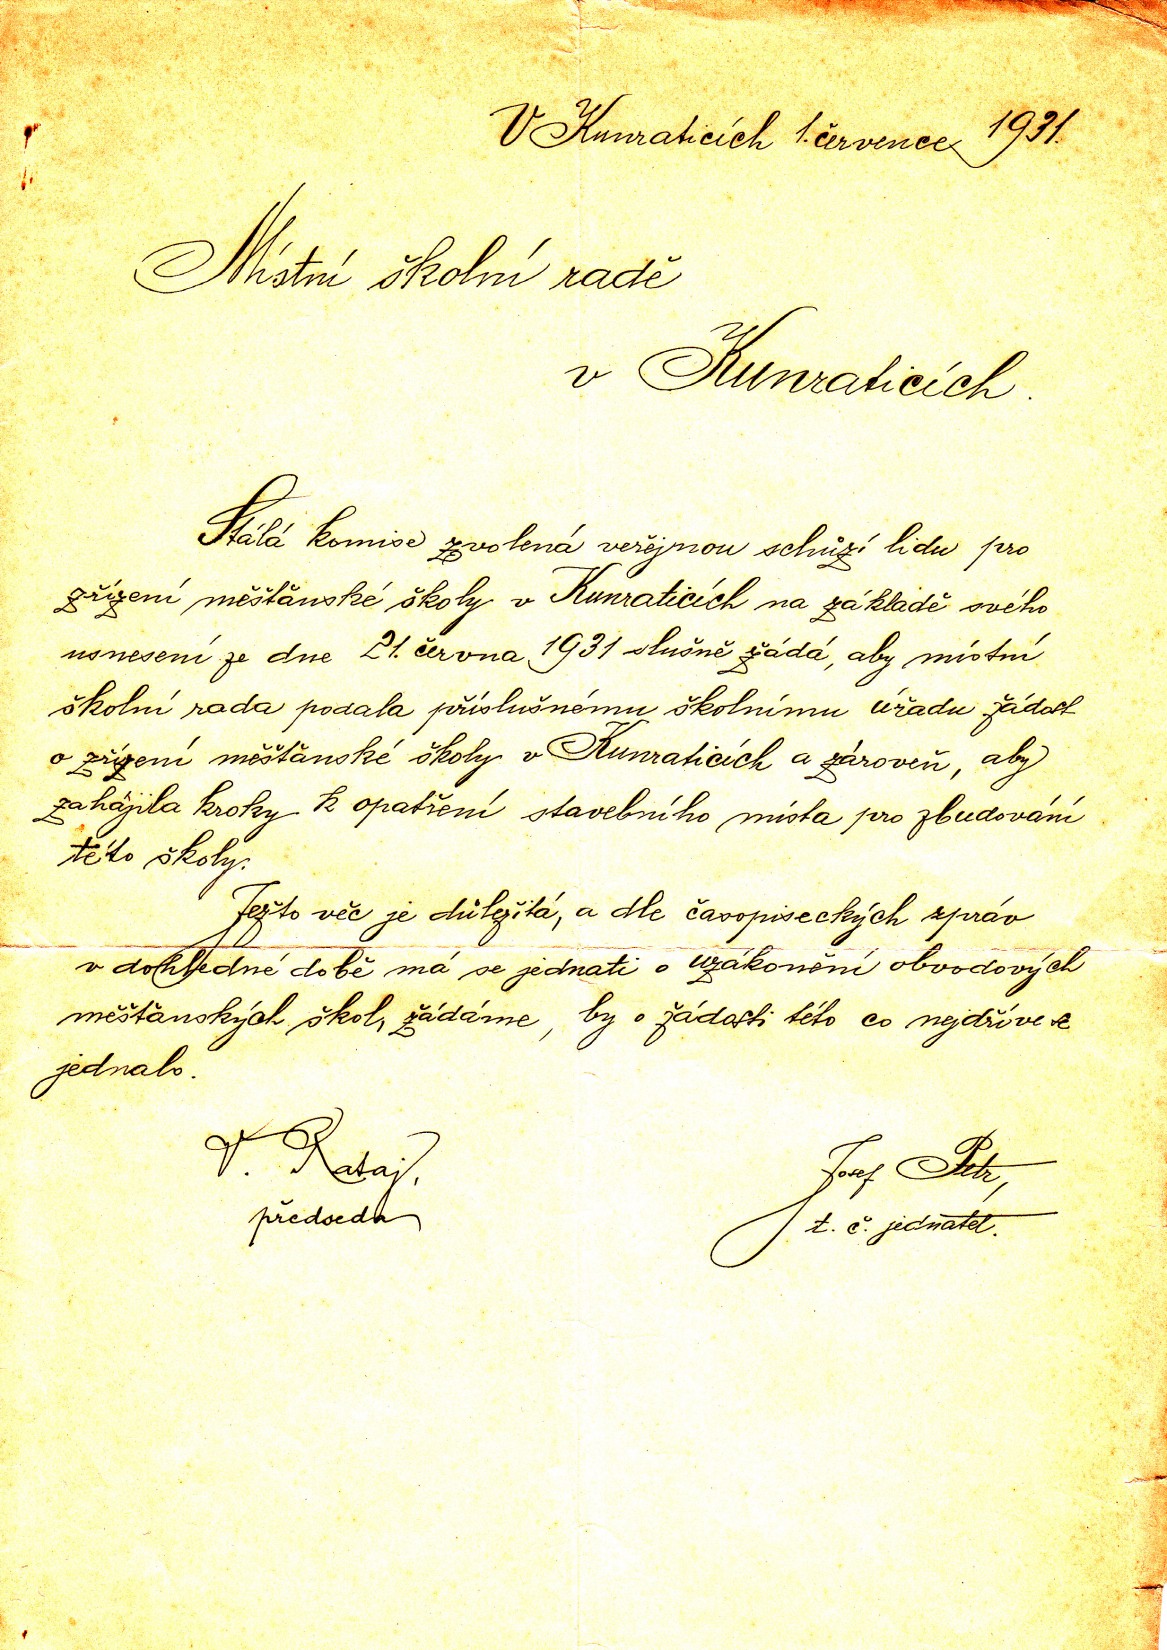 V Kunraticích 1. července 1931.
Místní školní radě
v Kunraticích.
Stálá komise zvolená veřejnou schůzí lidu pro
zřízení měšťanské školy v Kunraticích na základě svého
usnesení ze dne 21. června 1931 slušně žádá, aby místní
školní rada podala příslušnému školnímu úřadu žádost
o zřízení měšťanské školy v Kunraticích a zároveň, aby
zahájila kroky k opatření stavebního místa pro zbudování
této školy.
Ježto věc je důležitá, a dle časopiseckých zpráv
v dohledné době má se jednati o uzákonění obvodových
měšťanských škol, žádáme, by o žádosti této co nejdříve se
jednalo.
V. Rataj, Josef Petr,
předseda t. č. jednatel.